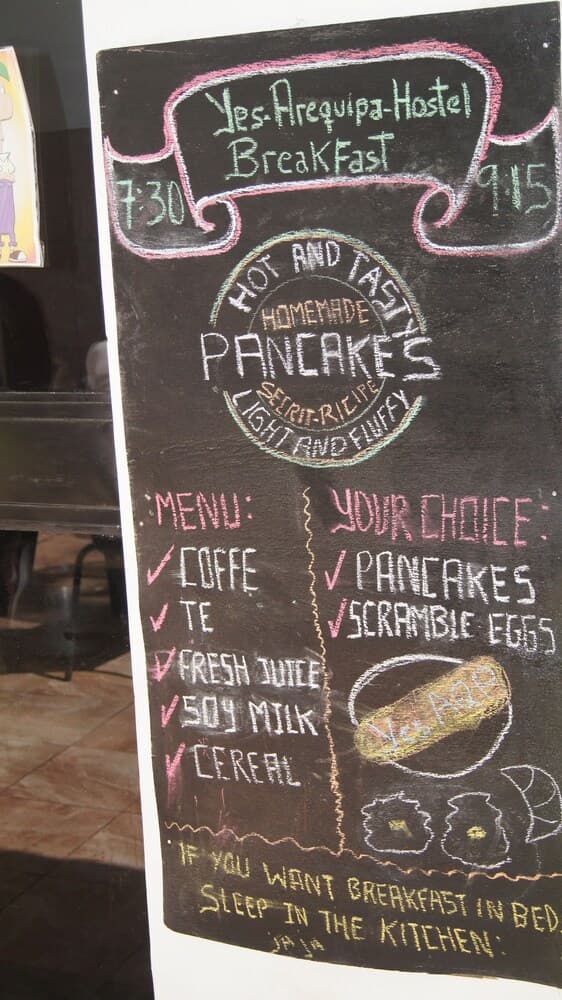 Yes-Arequipa-Hostel
BreaKFast
7:30
9:15
HOT AND TASTYS
HOMEMADE
PANCAKES
SECRIT-RICIPE
LIGHT AND FLUFFY
MENU:
COFFE
TE
FRESH JUICE
SOY MILK
CEREAL
YOUR CHOICE:
PANCAKES
SCRAMBLE EGGS
Yes
IF YOU WANT BREAKFAST IN BED
SLEEP IN THE KITCHEN:
JA JA